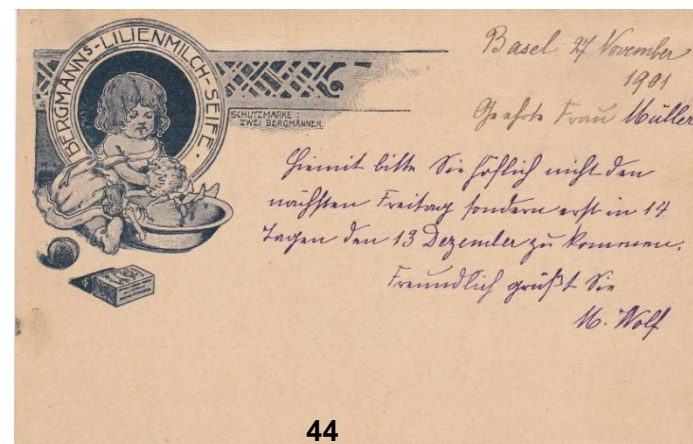 BERGMANN'S-LILIENMILCH-SEIFE.
SCHUTZMARKE:
ZWEI BERGMÄNNER
Basel 27 November
1901
Geehrte Frau Müller
Hiemit bitte Sie höflich nicht den
nächsten Freitag sondern erst in 14
Tagen den 13 Dezember zu kommen.
Freundlich grüßt Sie
M. Wolf
44